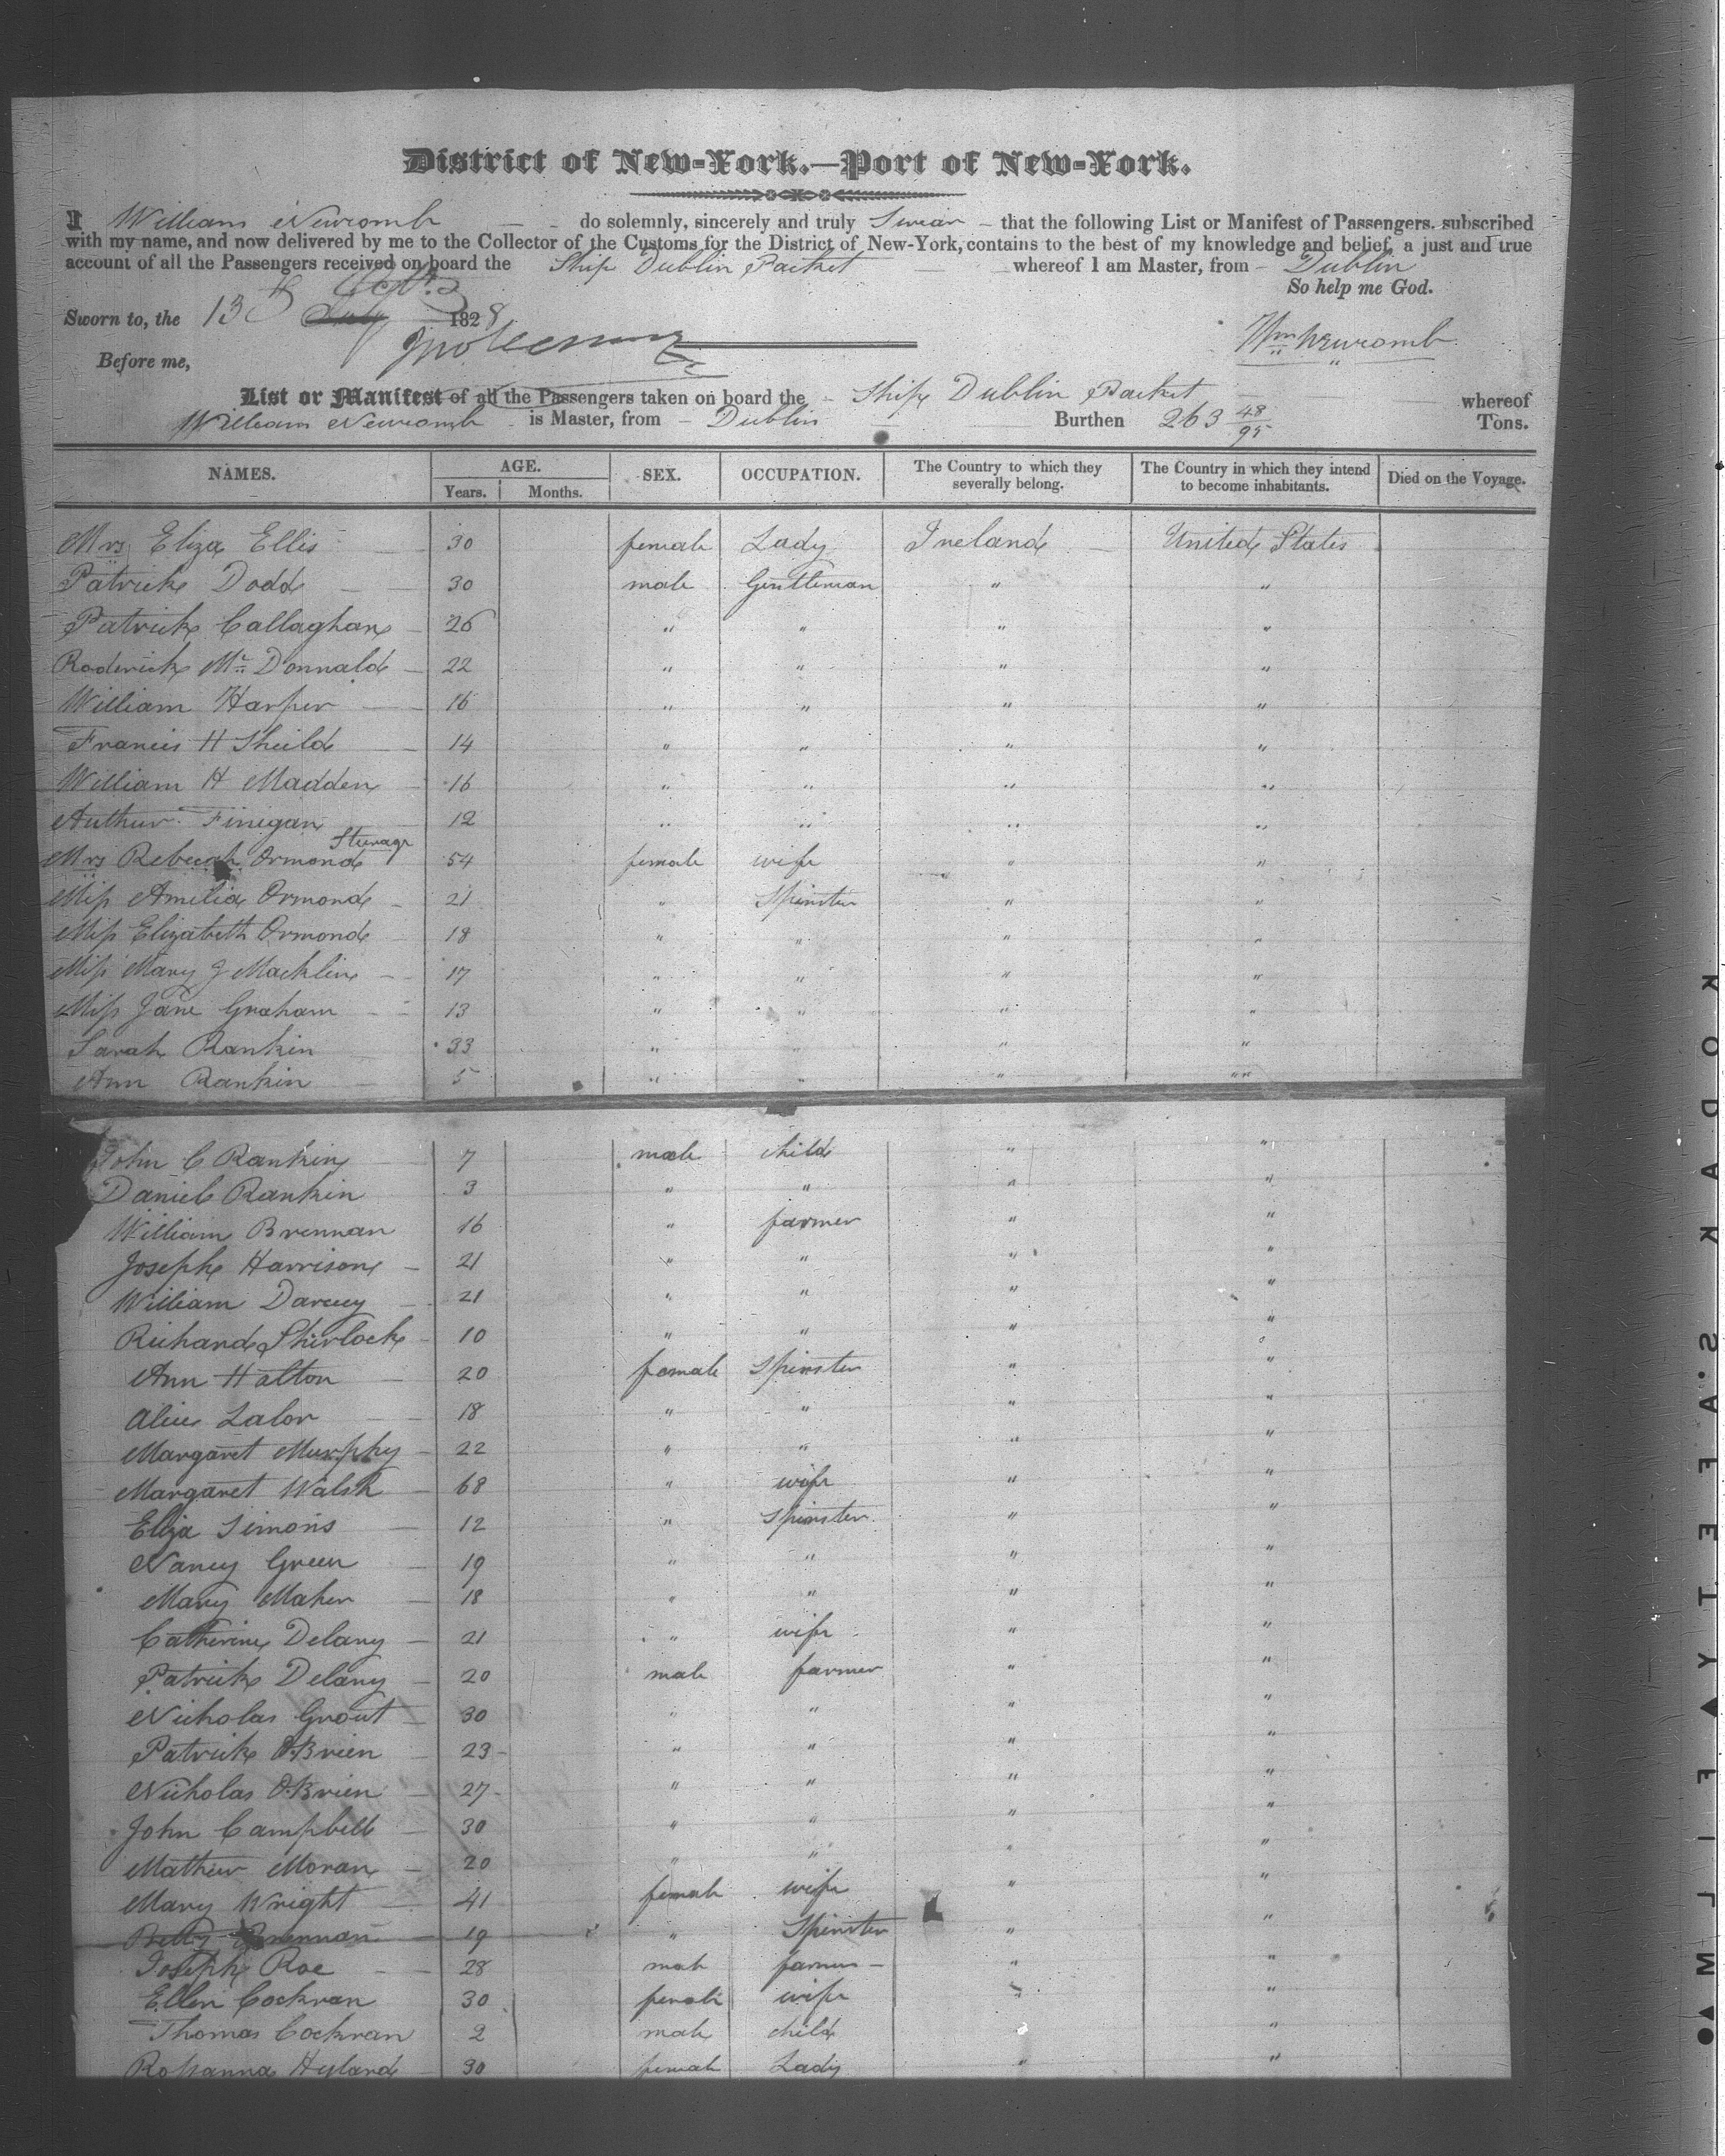 District of New-York.—Port of New-York.
I William Newcomb do solemnly, sincerely and truly Swear – that the following List or Manifest of Passengers, subscribed
with my name, and now delivered by me to the Collector of the Customs for the District of New-York, contains to the best of my knowledge and belief, a just and true
account of all the Passengers received on board the Ship Dublin Packet whereof I am Master, from – Dublin
So help me God.
Sworn to, the 13th July 1828
Wm Newcomb
Before me,
List or Manifest of all the Passengers taken on board the – Ship Dublin Packet whereof
William Newcomb is Master, from – Dublin Burthen 263 48/95 Tons.
NAMES. AGE. SEX. OCCUPATION. The Country to which they severally belong. The Country in which they intend to become inhabitants. Died on the Voyage.
Years. Months.
Mrs Eliza Ellis 30 female Lady Ireland United States
Patrick Dodd 30 male Gentleman " "
Patrick Callaghan 26 " " " "
Roderick Mc Donnald 22 " " " "
William Harper 16 " " " "
Francis H Sheild 14 " " " "
William H Madden 16 " " " "
Authur Finigan 12 " " " "
Steerage
Mrs Rebecah Ormond 54 female wife " "
Miss Amelia Ormond 21 " Spinster " "
Miss Elizabeth Ormond 18 " " " "
Miss Mary J Macklin 17 " " " "
Miss Jane Graham 13 " " " "
Sarah Rankin 33 " " " "
Ann Rankin 5 " " " "
John C Rankin 7 male child " "
Daniel Rankin 3 " " " "
William Brennan 16 " farmer " "
Joseph Harrison 21 " " " "
William Darcey 21 " " " "
Richard Shirlock 10 " " " "
Ann Halton 20 female Spinster " "
Alice Lalor 18 " " " "
Margaret Murphy 22 " " " "
Margaret Walsh 68 " wife " "
Eliza Simons 12 " Spinster " "
Nancy Green 19 " " " "
Mary Maher 18 " " " "
Catherine Delany 21 " wife " "
Patrick Delany 20 male farmer " "
Nicholas Grout 30 " " " "
Patrick O.Brien 23 " " " "
Nicholas O.Brien 27 " " " "
John Campbell 30 " " " "
Mathew Moran 20 " " " "
Mary Wright 41 female wife " "
Betty Brennan 19 " Spinster " "
Joseph Roe 28 male farmer " "
Ellen Cockran 30 female wife " "
Thomas Cockran 2 male child "
Rossanna Hyland 30 female Lady " "
KODAK SAFETY FILM